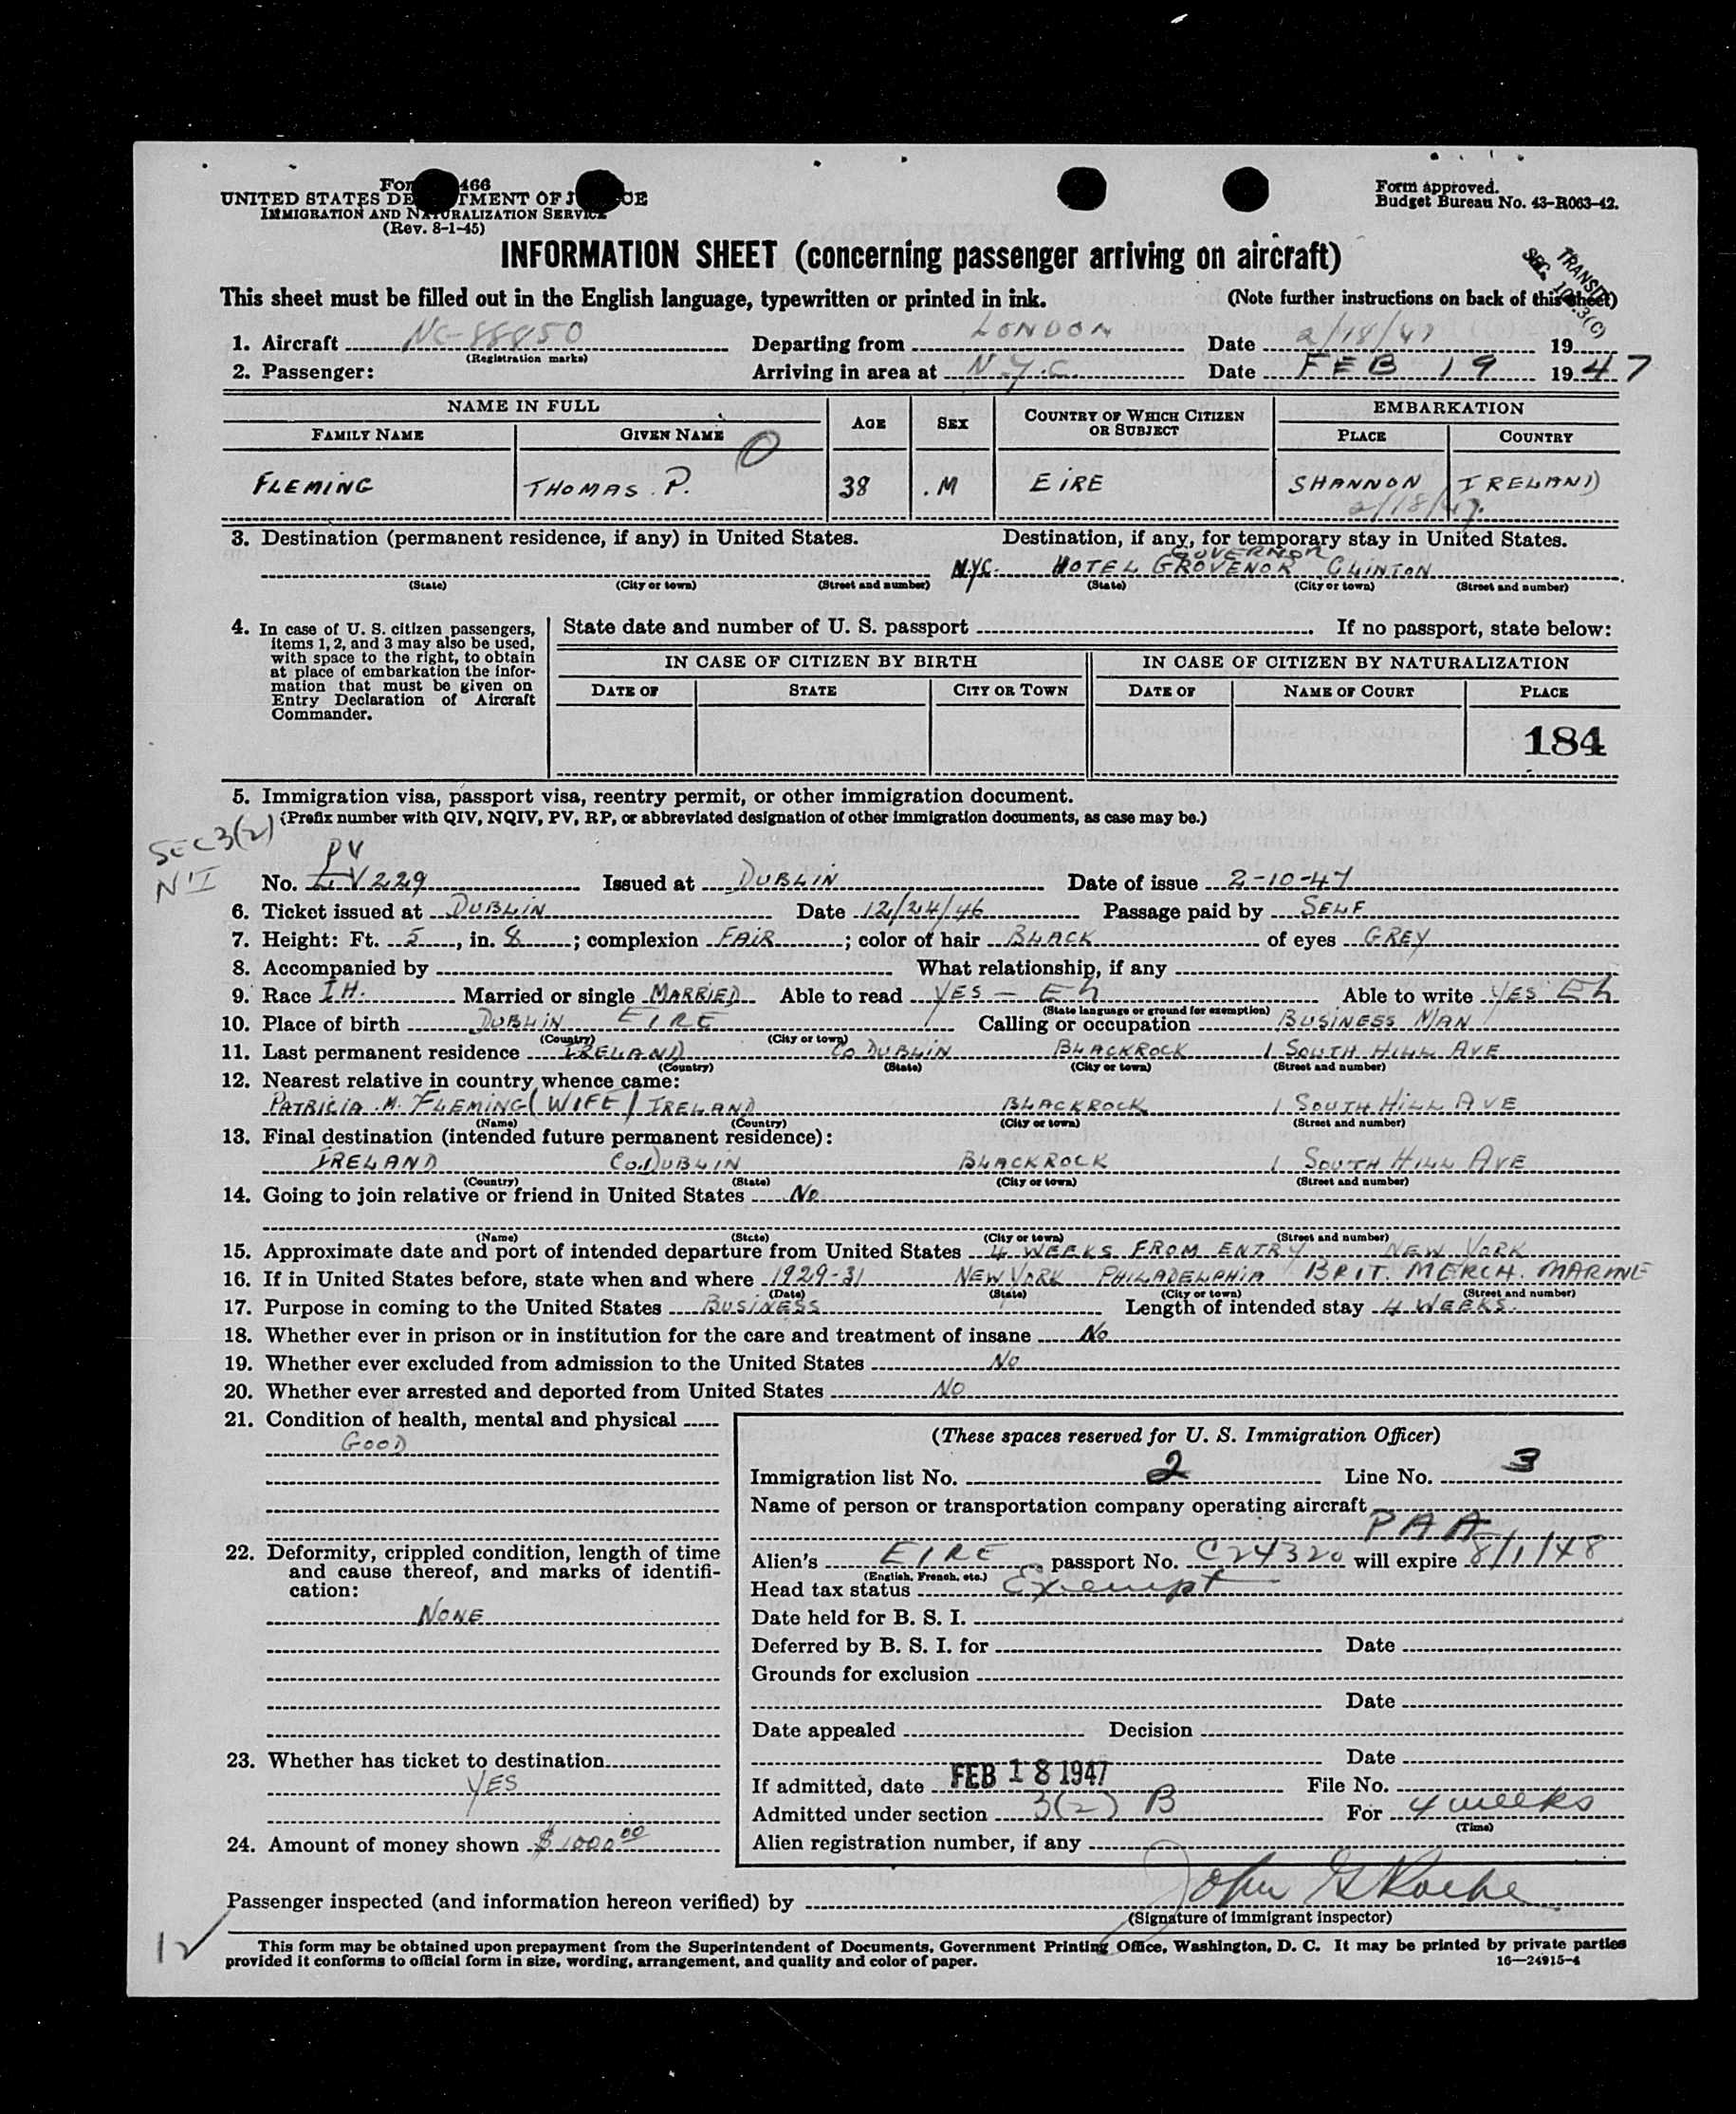 466
UNITED STATES DE TMENT OF J CE
IMMIGRATION AND NATURALIZATION SERVICE
(Rev. 8-1-45)
Form approved.
Budget Bureau No. 43-R063-42.
INFORMATION SHEET (concerning passenger arriving on aircraft)
TRANSIT
SEC. 10 .3(C)
This sheet must be filled out in the English language, typewritten or printed in ink. (Note further instructions on back of this sheet)
1. Aircraft NC-88850 Departing from LONDON Date 2/18/47 19
(Registration marks)
2. Passenger: Arriving in area at N.Y.C. Date FEB 19 1947
NAME IN FULL AGE SEX COUNTRY OF WHICH CITIZEN OR SUBJECT EMBARKATION
FAMILY NAME GIVEN NAME PLACE COUNTRY
FLEMING THOMAS. P. 38 .M EIRE SHANNON IRELAND
2/18/47.
3. Destination (permanent residence, if any) in United States. Destination, if any, for temporary stay in United States.
GOVERNOR
N.Y.C. HOTEL GROVENOR CLINTON
(State) (City or town) (Street and number) (State) (City or town) (Street and number)
4. In case of U. S. citizen passengers, items 1, 2, and 3 may also be used, with space to the right, to obtain at place of embarkation the information that must be given on Entry Declaration of Aircraft Commander.
State date and number of U. S. passport If no passport, state below:
IN CASE OF CITIZEN BY BIRTH IN CASE OF CITIZEN BY NATURALIZATION
DATE OF STATE CITY OR TOWN DATE OF NAME OF COURT PLACE
184
5. Immigration visa, passport visa, reentry permit, or other immigration document.
(Prefix number with QIV, NQIV, PV, RP, or abbreviated designation of other immigration documents, as case may be.)
SEC 3(2)
PV
No. V 229 Issued at DUBLIN Date of issue 2-10-47
6. Ticket issued at DUBLIN Date 12/24/46 Passage paid by SELF
7. Height: Ft. 5, in. 8; complexion FAIR; color of hair BLACK of eyes GREY
8. Accompanied by What relationship, if any
9. Race IH. Married or single MARRIED Able to read YES - Eh Able to write YES Eh
(State language or ground for exemption)
10. Place of birth DUBLIN EIRE Calling or occupation BUSINESS MAN
(Country) (City or town)
11. Last permanent residence IRELAND CO DUBLIN BLACKROCK 1 SOUTH HILL AVE
(Country) (State) (City or town) (Street and number)
12. Nearest relative in country whence came:
PATRICIA .M. FLEMING (WIFE) IRELAND BLACKROCK 1 SOUTH HILL AVE
(Name) (Country) (City or town) (Street and number)
13. Final destination (intended future permanent residence):
IRELAND CO. DUBLIN BLACKROCK 1 SOUTH HILL AVE
(Country) (State) (City or town) (Street and number)
14. Going to join relative or friend in United States No
(Name) (State) (City or town) (Street and number)
15. Approximate date and port of intended departure from United States 4 WEEKS FROM ENTRY NEW YORK
16. If in United States before, state when and where 1929-31 NEW YORK PHILADELPHIA BRIT. MERCH. MARINE
(Date) (State) (City or town) (Street and number)
17. Purpose in coming to the United States BUSINESS Length of intended stay 4 WEEKS.
18. Whether ever in prison or in institution for the care and treatment of insane No
19. Whether ever excluded from admission to the United States No
20. Whether ever arrested and deported from United States NO
21. Condition of health, mental and physical
GOOD
22. Deformity, crippled condition, length of time and cause thereof, and marks of identification:
NONE
23. Whether has ticket to destination
YES
24. Amount of money shown $1000 00
(These spaces reserved for U. S. Immigration Officer)
Immigration list No. 2 Line No. 3
Name of person or transportation company operating aircraft
PAA
Alien's EIRE passport No. C24320 will expire 8/1/48
(English, French, etc.)
Head tax status Exempt
Date held for B. S. I.
Deferred by B. S. I. for Date
Grounds for exclusion
Date
Date appealed Decision
Date
If admitted, date FEB 18 1947 File No.
Admitted under section 3(2) B For 4 weeks
(Time)
Alien registration number, if any
Passenger inspected (and information hereon verified) by John G Roche
(Signature of immigrant inspector)
This form may be obtained upon prepayment from the Superintendent of Documents, Government Printing Office, Washington, D. C. It may be printed by private parties
provided it conforms to official form in size, wording, arrangement, and quality and color of paper.
16—24915-4